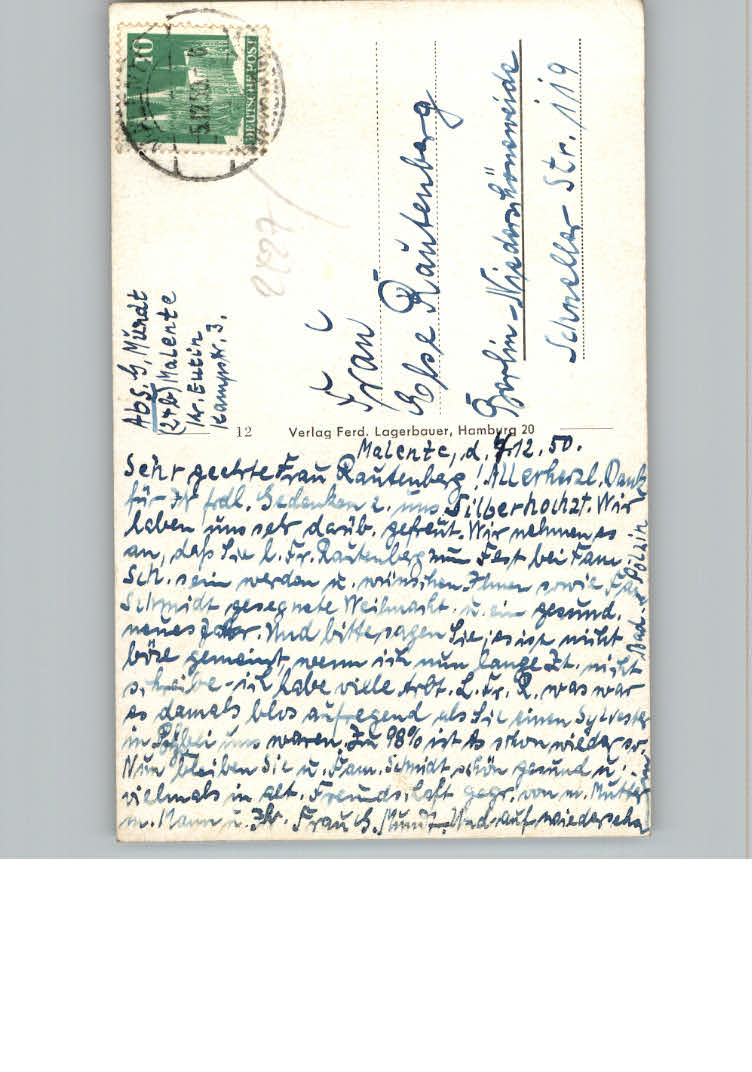 10
DEUTSCHE POST
5.12.50
2827
Abs. G. Mündt
(24b) Malente
Kr. Eutin
Kampstr. 3.
Frau
Else Rautenberg
Berlin-Niederschöneweide
Schneller-Str. 119
12 Verlag Ferd. Lagerbauer, Hamburg 20
Malente, d. 12. 50.
Sehr geehrte Frau Rautenberg! Allerherzl. Dank
für Ihr frdl. Gedenken z. uns. Silberhochzt. Wir
haben uns sehr darüb. gefreut. Wir nehmen es
an, daß Sie l. Fr. Rautenberg zum Fest bei Fam.
Sch. sein werden u. wünschen Ihnen sowie Fam.
Schmidt gesegnete Weihnacht. u. ein gesund.
neues Jahr. Und bitte sagen Sie, es ist nicht
böse gemeint, wenn ich nun lange Zt. nicht
schreibe - ich habe viele Arbt. L. Fr. R. was war
es damals blos aufregend als Sie einen Sylvester
in bei uns waren. Zu 98% ist es schon wieder so.
Nun bleiben Sie u. Fam. Schmidt schön gesund u.
vielmals in alt. Freundschaft gegr. von m. Mutter
m. Mann u. Ihr. Frau G. Mündt. Und auf wiedersehn
Bad Polzin